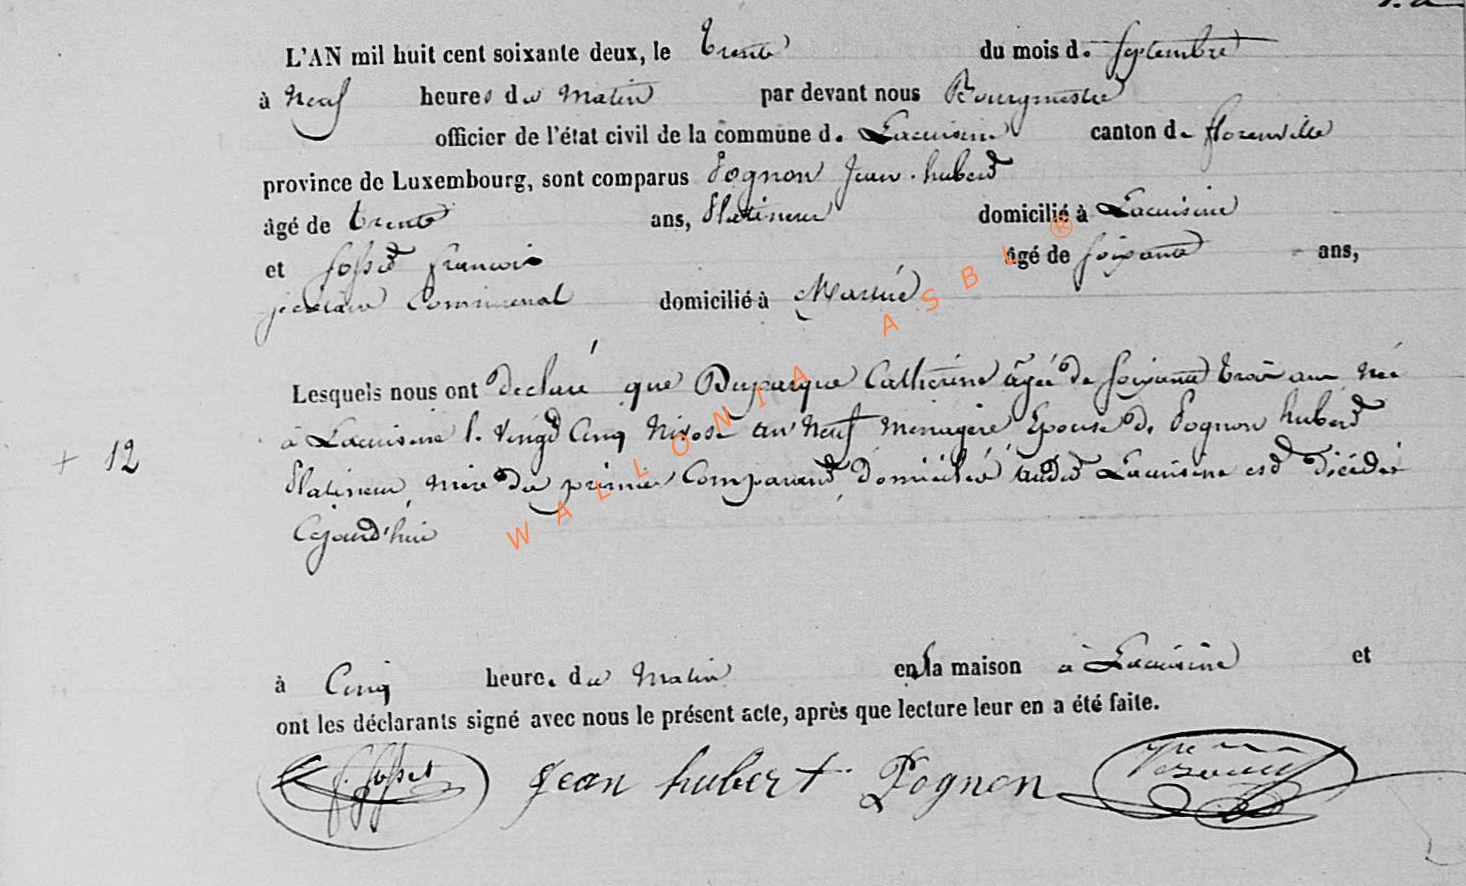 L'AN mil huit cent soixante deux, le Trente du mois de Septembre
à Neuf heures du Matin par devant nous Bourgmestre
officier de l'état civil de la commune de Lacuisine canton de florenville
province de Luxembourg, sont comparus Pognon Jean hubert
âgé de trente ans, Platineur domicilié à Lacuisine
et fosset francois âgé de soixante ans,
secrétaire Communal domicilié à
Lesquels nous ont déclaré que Duparque Catherine âgée de soixante trois ans née
à Lacuisine le Vingt Cinq Nivose an Neuf Menagère Epouse de Pognon hubert
12
Platineur, mère du premier Comparant, domiciliée audit Lacuisine est décédée
Cejourd'hui
à Cinq heure. du Matin en la maison à Lacuisine et
ont les déclarants signé avec nous le présent acte, après que lecture leur en a été faite.
f. fosset Jean hubert Pognon
WALLONIA ASBL ®